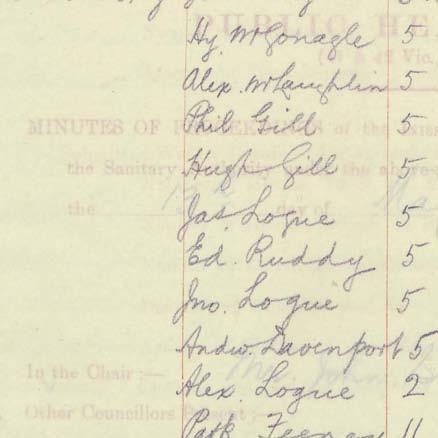 Hy. McGonagle 5
Alex. McLaughlin 5
Phil Gill 5
Hugh Gill 5
Jas. Logue 5
Ed. Ruddy 5
Jno. Logue 5
Andw. Davenport 5
Alex. Logue 2
Patk Feeney 11
PUBLIC HE
MINUTES OF PROCEEDINGS of the
the Sanitary the above
the day of
In the Chair :—
Other Councillors Present :—